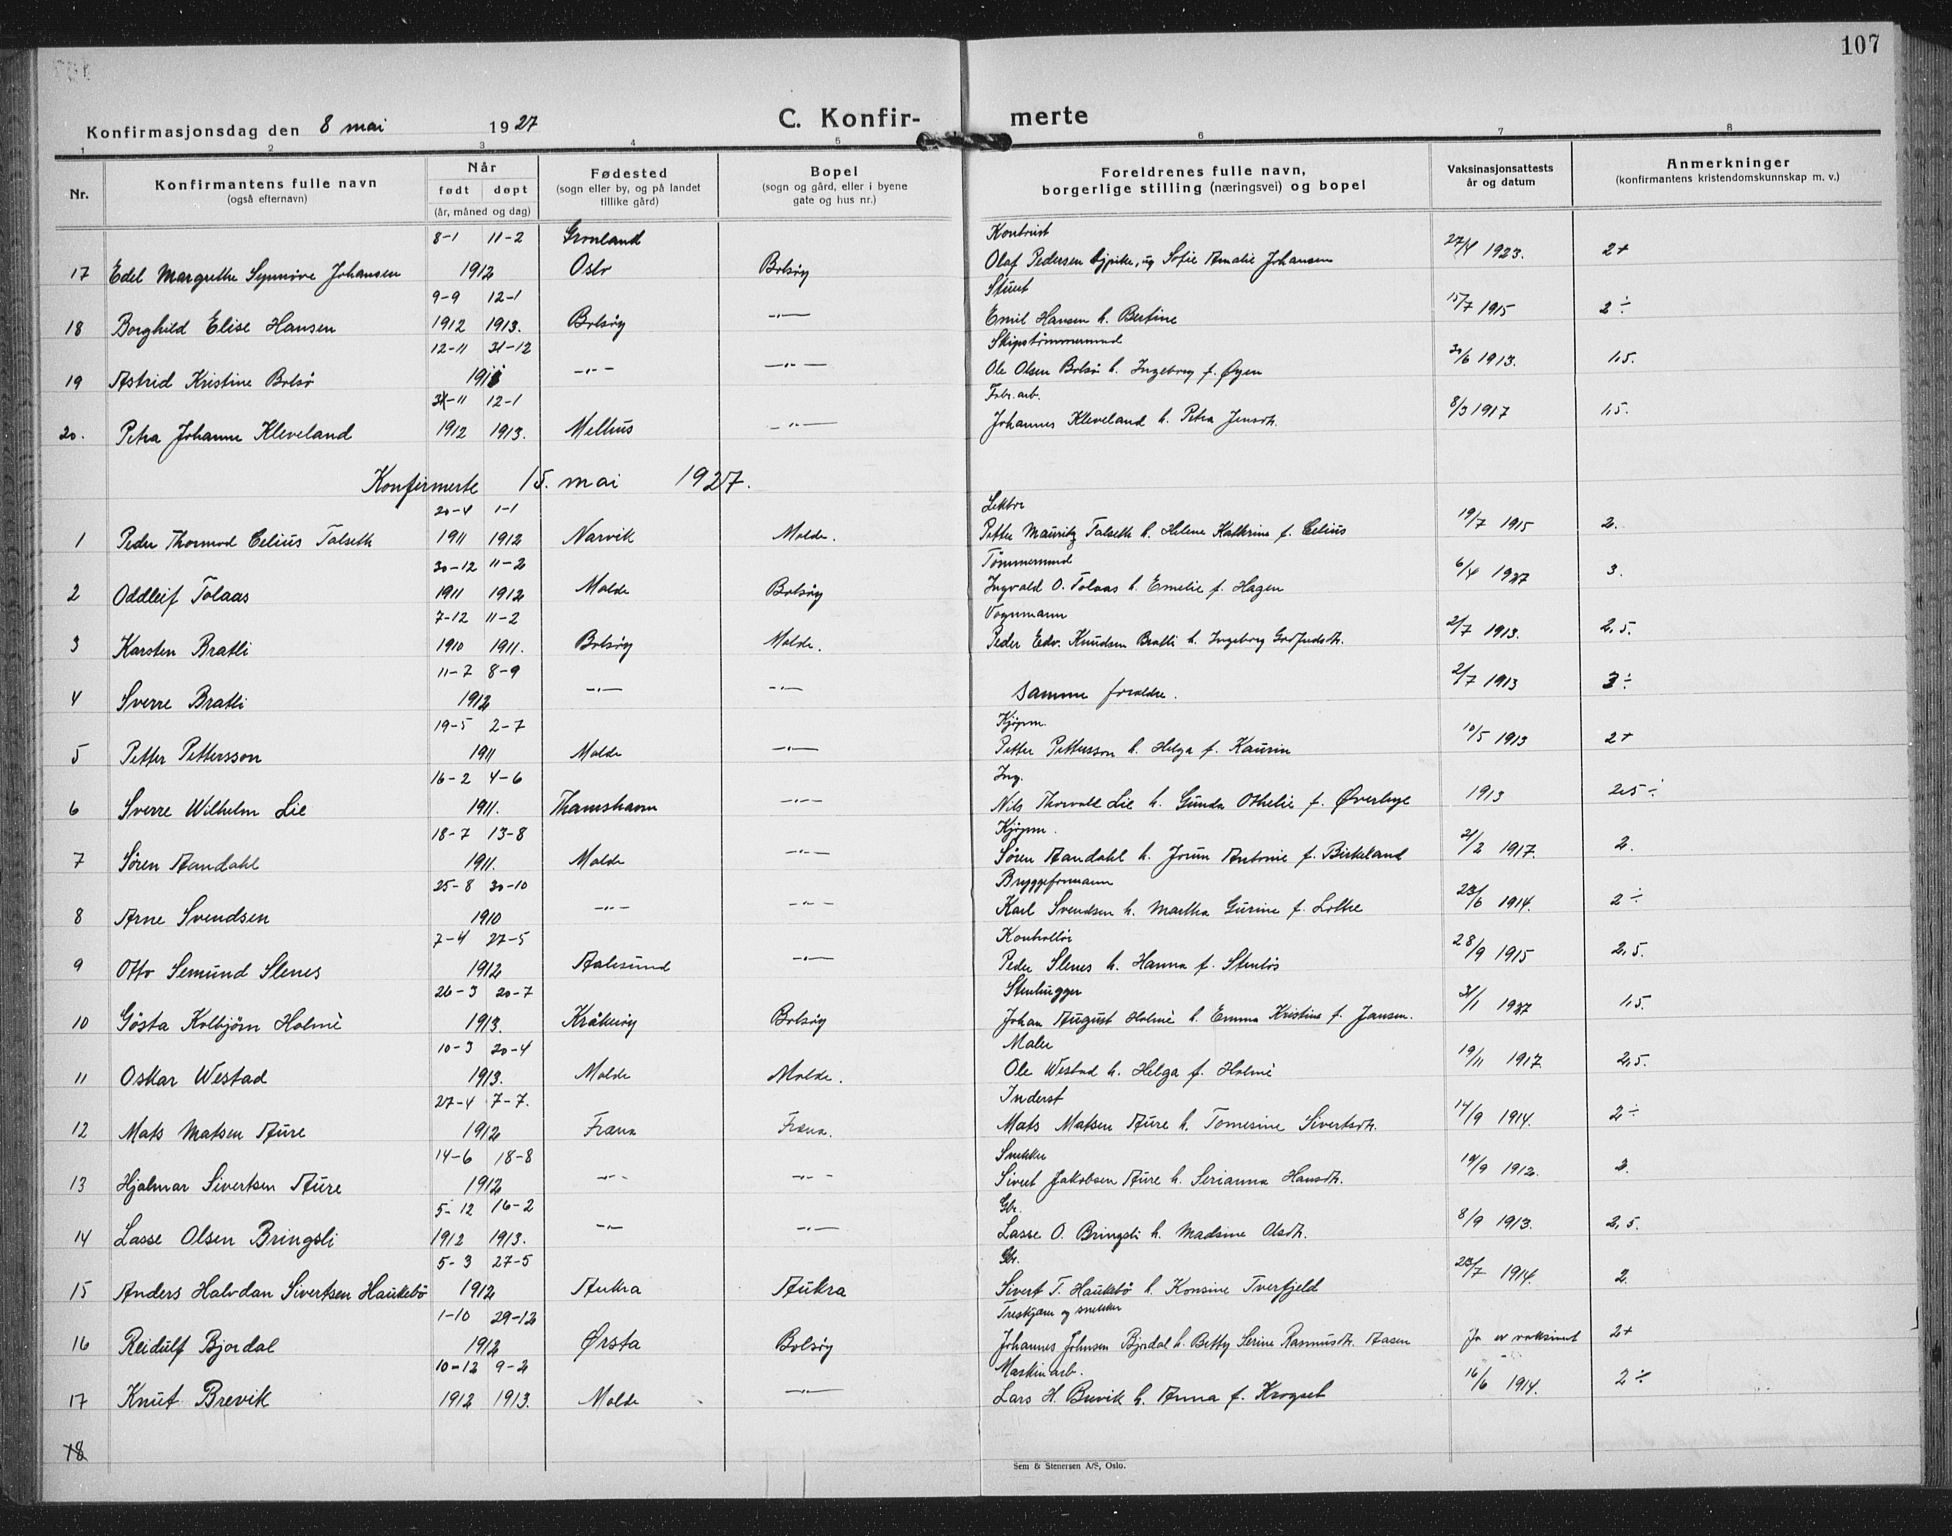 107
Konfirmasjonsdag den 8 mai 1927 C. Konfirmerte
1 2 3 4 5 6 7 8
Nr. Konfirmantens fulle navn (også efternavn) Når født døpt (år, måned og dag) Fødested (sogn eller by, og på landet tillike gård) Bopel (sogn og gård, eller i byene gate og hus nr.) Foreldrenes fulle navn, borgerlige stilling (næringsvei) og bopel Vaksinasjonsattests år og datum Anmerkninger (konfirmantens kristendomskunnskap m. v.)
8-1 11-2 Grønland
17 Edel Margrethe Synnøve Johansen 1912 Oslo Bolsøy Olaf Pedersen og Sofie Amalie Johansen 27/4 1923. 2+
9-9 12-1
18 Borghild Elise Hansen 1912 1913. Bolsøy -"- Emil Hansen h. Bertine 15/7 1915 2÷
12-11 31-12 Skipstømmermand
19 Astrid Kristine Bolsø 1911 -"- -"- Ole Olsen Bolsø h. Ingeborg f. Øyen 30/6 1913. 1,5.
-11 12-1 Fabr. arb.
20. Petra Johanne Kleveland 1912 1913. Melhus -"- Johannes Kleveland h. Petra Jensdt. 8/3 1917 1,5.
Konfirmerte 15. mai 1927.
20-4 1-1 Lektor
1 Peder Thormod Celius Talseth 1911 1912 Narvik Molde. Petter Mauritz Talseth h. Helene Kathrine f. Celius 19/7 1915 2.
30-12 11-2 Tømmermand
2 Oddleif Tolaas 1911 1912 Molde Bolsøy Ingvald O. Tolaas h. Emelie f. Hagen 6/4 1927 3.
7-12 11-2 Vognmann
3 Karsten Bratli 1910 1911. Bolsøy Molde. Peder Edv. Knudsen Bratli h. Ingeborg 2/7 1913. 2,5.
11-7 8-9
4 Sverre Bratli 1912 -"- -"- samme foreldre. 2/7 1913 3÷
19-5 2-7 Kjøpm.
5 Petter Pettersson 1911 Molde -"- Petter Pettersson h. Helga f. Kaurin 10/5 1913 2+
16-2 4-6 Ing.
6 Sverre Wilhelm Lie 1911. Thamshavn -"- Nils Thorvald Lie h. Gunda Othelie f. Øverbye 1913 2,5÷
18-7 13-8 Kjøpm.
7 Søren Aandahl 1911. Molde -"- Søren Aandahl h. Jorun Antonie f. Birkeland 21/2 1917. 2.
25-8 30-10 Bryggeformann
8 Arne Svendsen 1910 -"- -"- Karl Svendsen h. Martha Gurine f. Lothe 23/6 1914. 2÷
7-4 27-5 Kontrollør
9 Otto Semund Slenes 1912 Aalesund -"- Peder Slenes h. Hanna f. Stenløs 28/9 1915 2,5.
26-3 20-7 Stenhugger
10 Gösta Kolbjørn Holmè 1913. Bolsøy Johan August Holmè h. Emma Kristine f. Jansen. 31/1 1927 1,5
10-3 20-4 Maler
11 Oskar Westad 1913. Molde Molde. Ole Westad h. Helga f. Holmè 19/11 1917. 2,5.
27-4 7-7. Inderst
12 Mats Matsen Aure 1912 Fræna Fræna. Mats Matsen Aure h. Tomesine Sivertsdt. 14/9 1914. 2÷
14-6 18-8 Snekker
13 Hjalmar Sivertsen Aure 1912 -"- -"- Sivert Jakobsen Aure h. Serianna Hansdt. 19/9 1912. 2.
5-12 16-2 Gbr.
14 Lasse Olsen Bringsli 1912 1913. -"- -"- Lasse O. Bringsli h. Madsine Olsdt. 8/9 1913. 2,5.
5-3 27-5 Gbr.
15 Anders Halvdan Sivertsen Haukebø 1912 Aukra Aukra Sivert T. Haukebø h. Konsine Tverfjeld 23/7 1914. 2.
1-10 29-12 Treskjærer og snekker
16 Reidulf Bjørdal 1912 Ørsta Bolsøy Johannes Johnsen Bjørdal h. Betty Serine Rasmusdt. Aasen Ja er vaksinert 2+
10-12 9-2 Maskinarb.
17 Knut Brevik 1912 1913. Molde -"- Lars H. Brevik h. Anna f. Krogset 16/6 1914. 2÷
18
Sem & Stenersen A/S, Oslo.